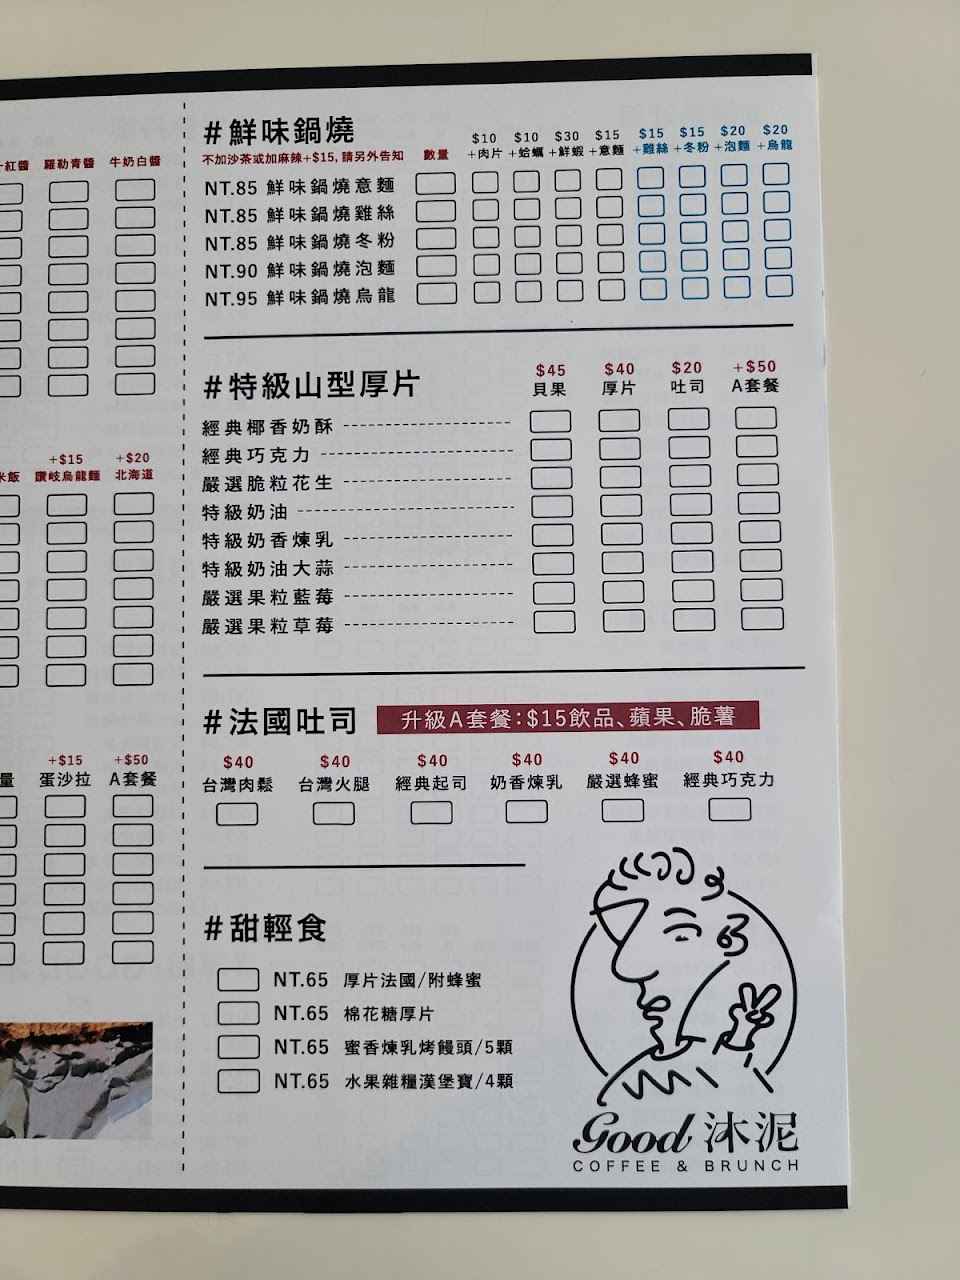 紅醬 羅勒青醬 牛奶白醬
+$15 +$20
米飯 讚岐烏龍麵 北海道
+$15 +$50
量 蛋沙拉 A套餐
#鮮味鍋燒
不加沙茶或加麻辣+$15,請另外告知 數量
$10 $10 $30 $15 $15 $15 $20 $20
+肉片 +蛤蠣 +鮮蝦 +意麵 +雞絲 +冬粉 +泡麵 +烏龍
NT.85 鮮味鍋燒意麵
NT.85 鮮味鍋燒雞絲
NT.85 鮮味鍋燒冬粉
NT.90 鮮味鍋燒泡麵
NT.95 鮮味鍋燒烏龍
#特級山型厚片
$45 $40 $20 +$50
貝果 厚片 吐司 A套餐
經典椰香奶酥
經典巧克力
嚴選脆粒花生
特級奶油
特級奶香煉乳
特級奶油大蒜
嚴選果粒藍莓
嚴選果粒草莓
#法國吐司 升級A套餐:$15飲品、蘋果、脆薯
$40 $40 $40 $40 $40 $40
台灣肉鬆 台灣火腿 經典起司 奶香煉乳 嚴選蜂蜜 經典巧克力
#甜輕食
NT.65 厚片法國/附蜂蜜
NT.65 棉花糖厚片
NT.65 蜜香煉乳烤饅頭/5顆
NT.65 水果雜糧漢堡寶/4顆
Good 沐泥
COFFEE & BRUNCH